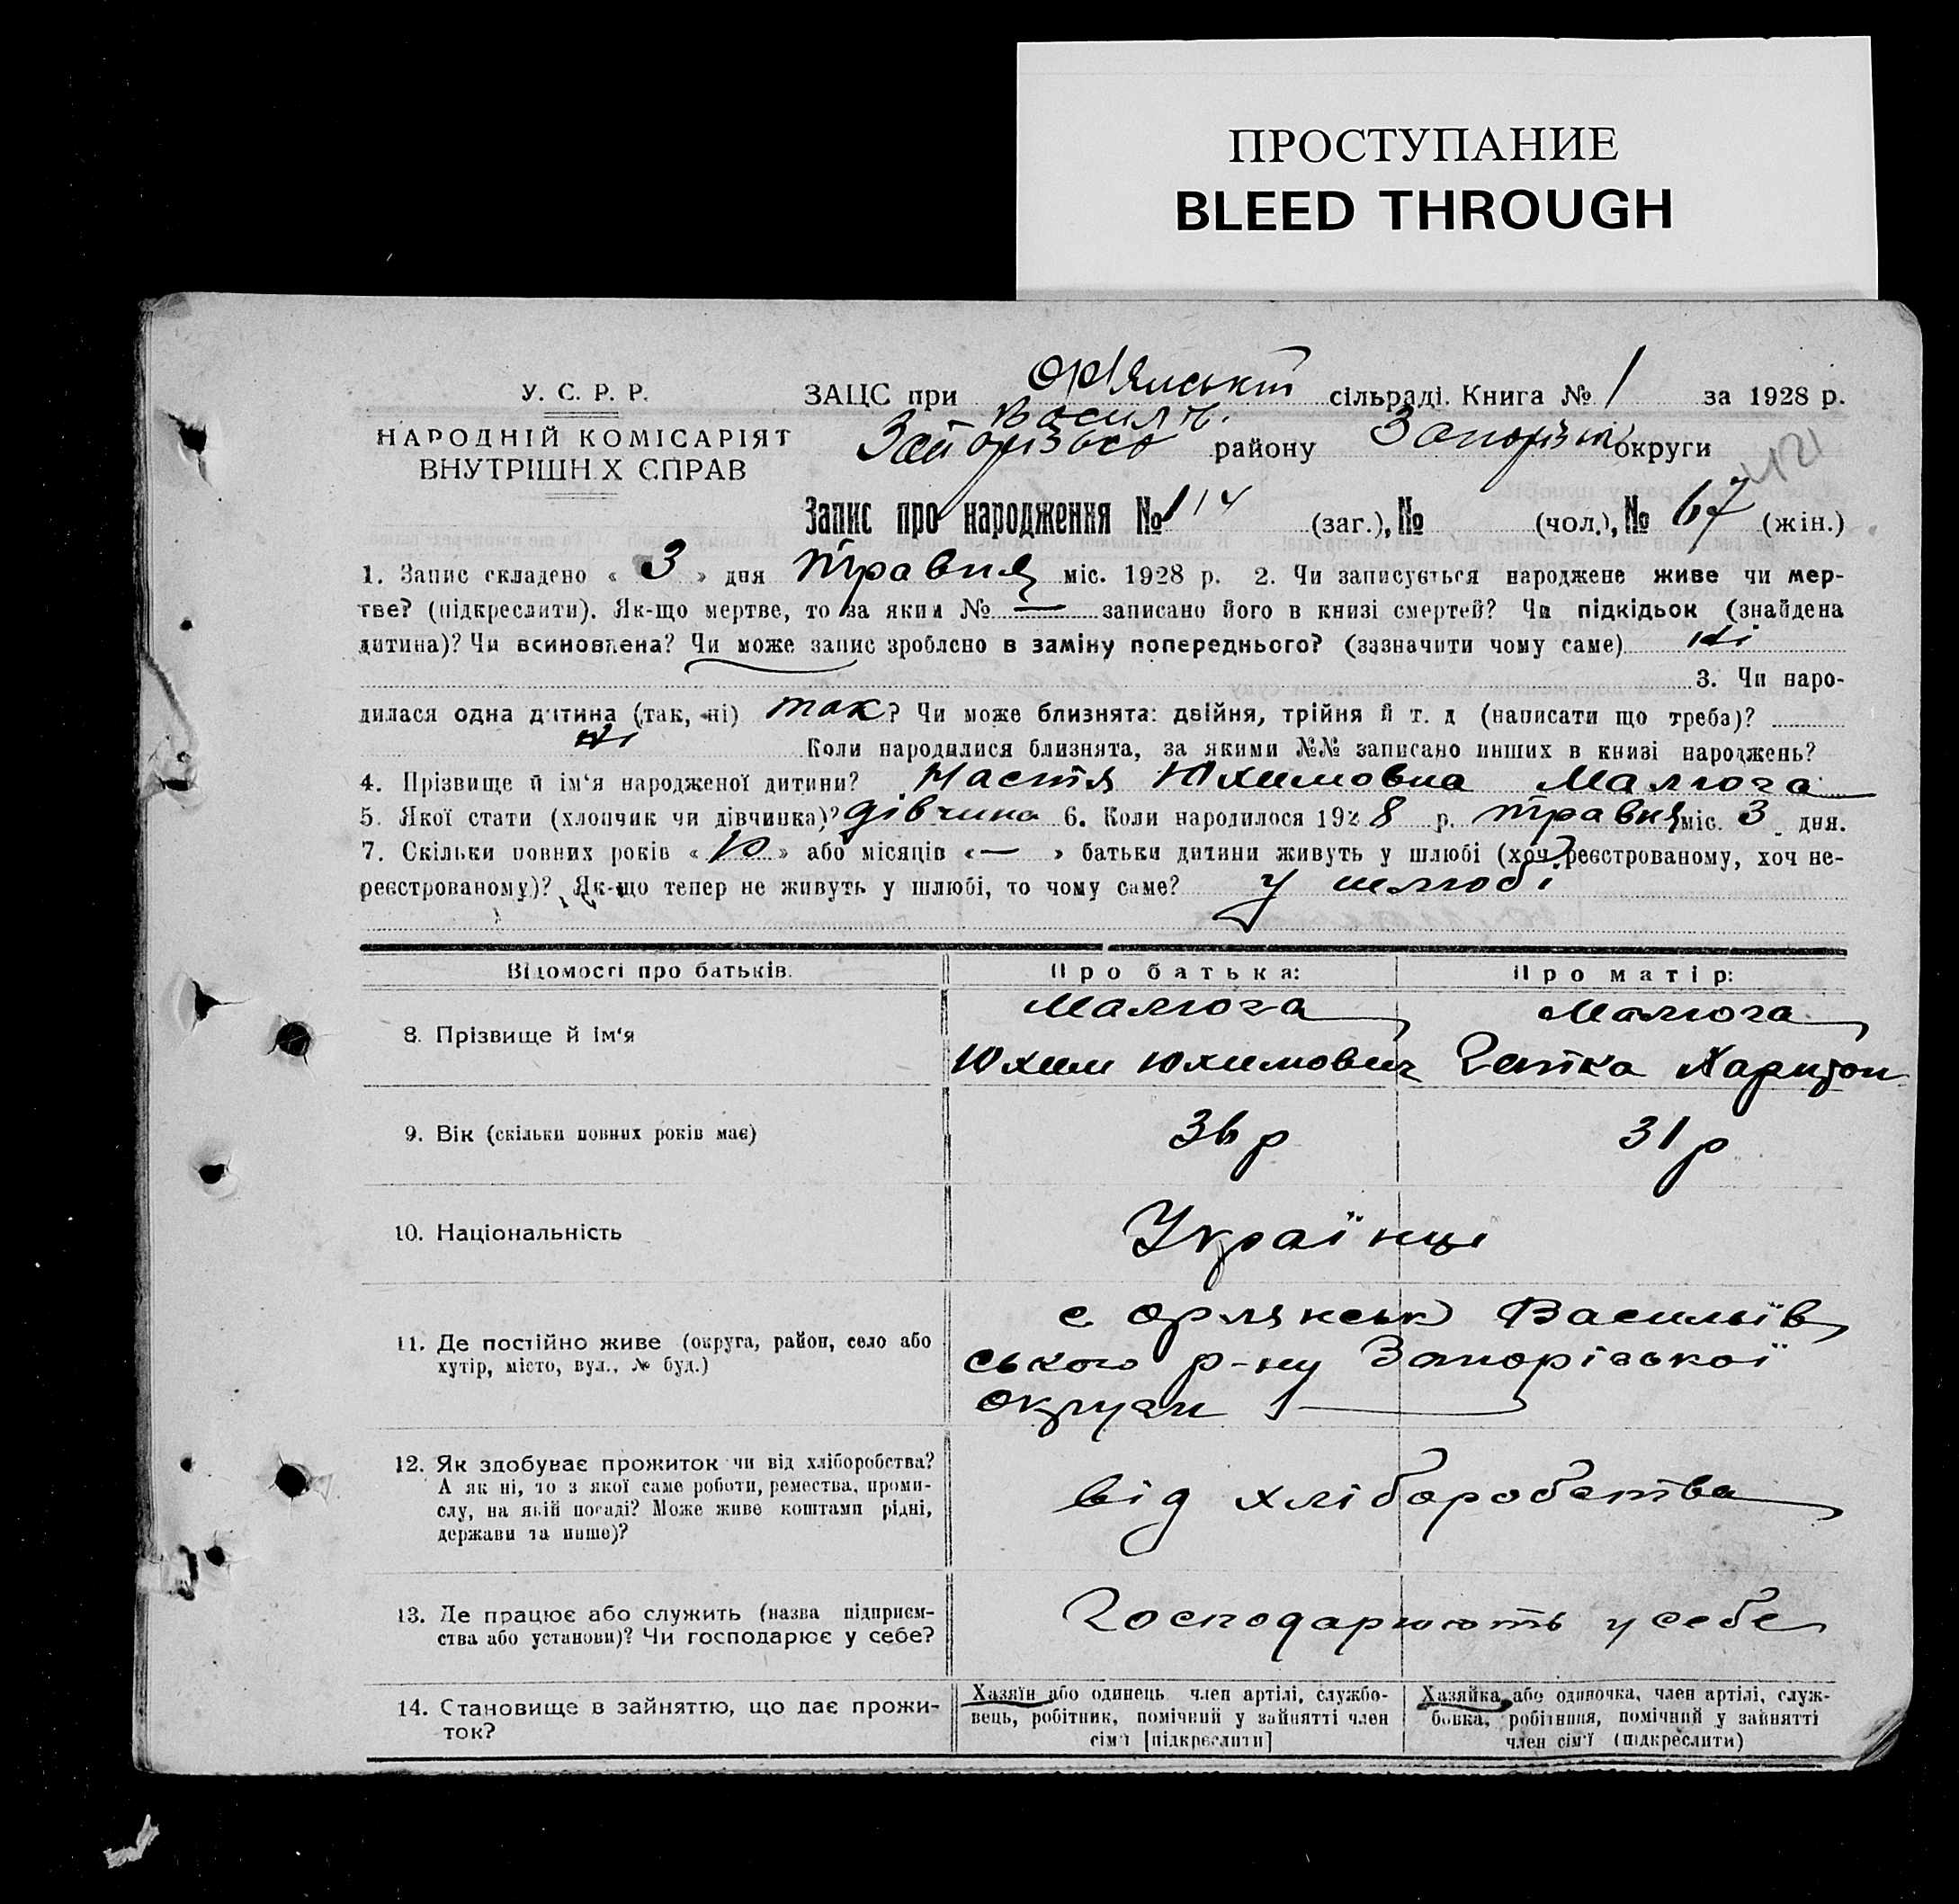 ПРОСТУПАНИЕ
BLEED THROUGH
У. С. Р. Р.
НАРОДНІЙ КОМІСАРІЯТ
ВНУТРІШН Х СПРАВ
ЗАЦС при сільраді. Книга № 1 за 1928 р.
Василів.
району округи
Запис про народження № 114 (заг.), № (чол.), № 67 (жін.)
1. Запис складено « 3 » дня травня міс. 1928 р. 2. Чи записується народжене живе чи мер-
тве? (підкреслити). Як-що мертве, то за яким № — записано його в книзі смертей? Чи підкідьок (знайдена
дитина)? Чи всиновлена? Чи може запис зроблено в заміну попереднього? (зазначити чому саме) ні
3. Чи наро-
дилася одна дитина (так, ні) так? Чи може близнята: двійня, трійня й т. д (написати що треба)?
ні Коли народилися близнята, за якими №№ записано инших в книзі народжень?
4. Прізвище й ім‘я народженої дитини? Настя Юхимовна Малюга
5. Якої стати (хлопчик чи дівчинка)? дівчина 6. Коли народилося 1928 р. травня міс. 3 дня.
7. Скільки повних років « 10 » або місяців « — » батьки дитини живуть у шлюбі (хоч реєстрованому, хоч не-
реєстрованому)? Як-що тепер не живуть у шлюбі, то чому саме? У шлюбі
Відомості про батьків.
Про батька:
Про матір:
8. Прізвище й ім‘я
Малюга
Юхим Юхимович
Малюга
Гапка Харитон
9. Вік (скільки повних років має)
36 р
31 р
10. Національність
Українці
11. Де постійно живе (округа, район, село або
хутір, місто, вул., № буд.)
с Орлянськ Васильїв
ського р-ну Запорізької
округи
12. Як здобуває прожиток чи від хліборобства?
А як ні, то з якої саме роботи, ремества, проми-
слу, на якій посаді? Може живе коштами рідні,
держави та инше)?
від хліборобства
13. Де працює або служить (назва підприєм-
ства або установи)? Чи господарює у себе?
Господарюють у себе
14. Становище в зайняттю, що дає прожи-
ток?
Хазяїн або одинець член артілі, службо-
вець, робітник, помічний у зайнятті член
сім‘ї [підкреслити]
Хазяйка або одиночка, член артілі, служ-
бовка, робітниця, помічний у зайнятті
член сім‘ї (підкреслити)